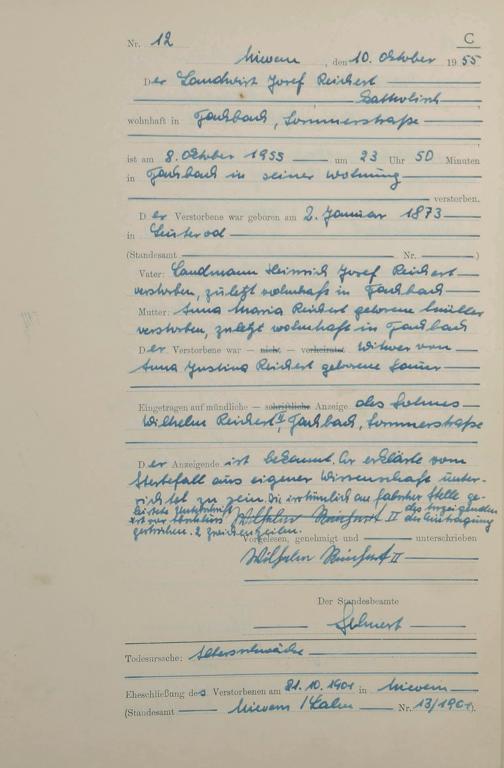 C
Nr. 12
Nievern, den 10. Oktober 1955
Der Landwirt Josef Reichert
Katholisch
wohnhaft in Fachbach, Sommerstraße
ist am 8. Oktober 1955 um 23 Uhr 50 Minuten
in Fachbach in seiner Wohnung
verstorben.
Der Verstorbene war geboren am 2. Januar 1873
in
(Standesamt Nr. )
Vater: Landmann Heinrich Josef Reichert
verstorben, zuletzt wohnhaft in Fachbach
Mutter: Anna Maria Reichert geborene Müller
verstorben, zuletzt wohnhaft in Fachbach
Der Verstorbene war — nicht — verheiratet Witwer von
Anna Justina Reichert geborene
Eingetragen auf mündliche — schriftliche Anzeige des Sohnes
Wilhelm Reichert II, Fachbach, Sommerstraße
Der Anzeigende ist bekannt. Er erklärte vom
Sterbefall aus eigener Wissenschaft unter-
richtet zu sein. Die irrtümlich an falscher Stelle ge-
leistete Unterschrift Wilhelm Reichert II des Anzeigenden
ist vor der Eintragung
gestrichen. 2 Zwischenzeilen.
Vorgelesen, genehmigt und unterschrieben
Wilhelm Reichert II
Der Standesbeamte
Todesursache: Altersschwäche
Eheschließung des Verstorbenen am 21.10.1901 in Nievern
(Standesamt Nievern /Lahn Nr. 13/1901).